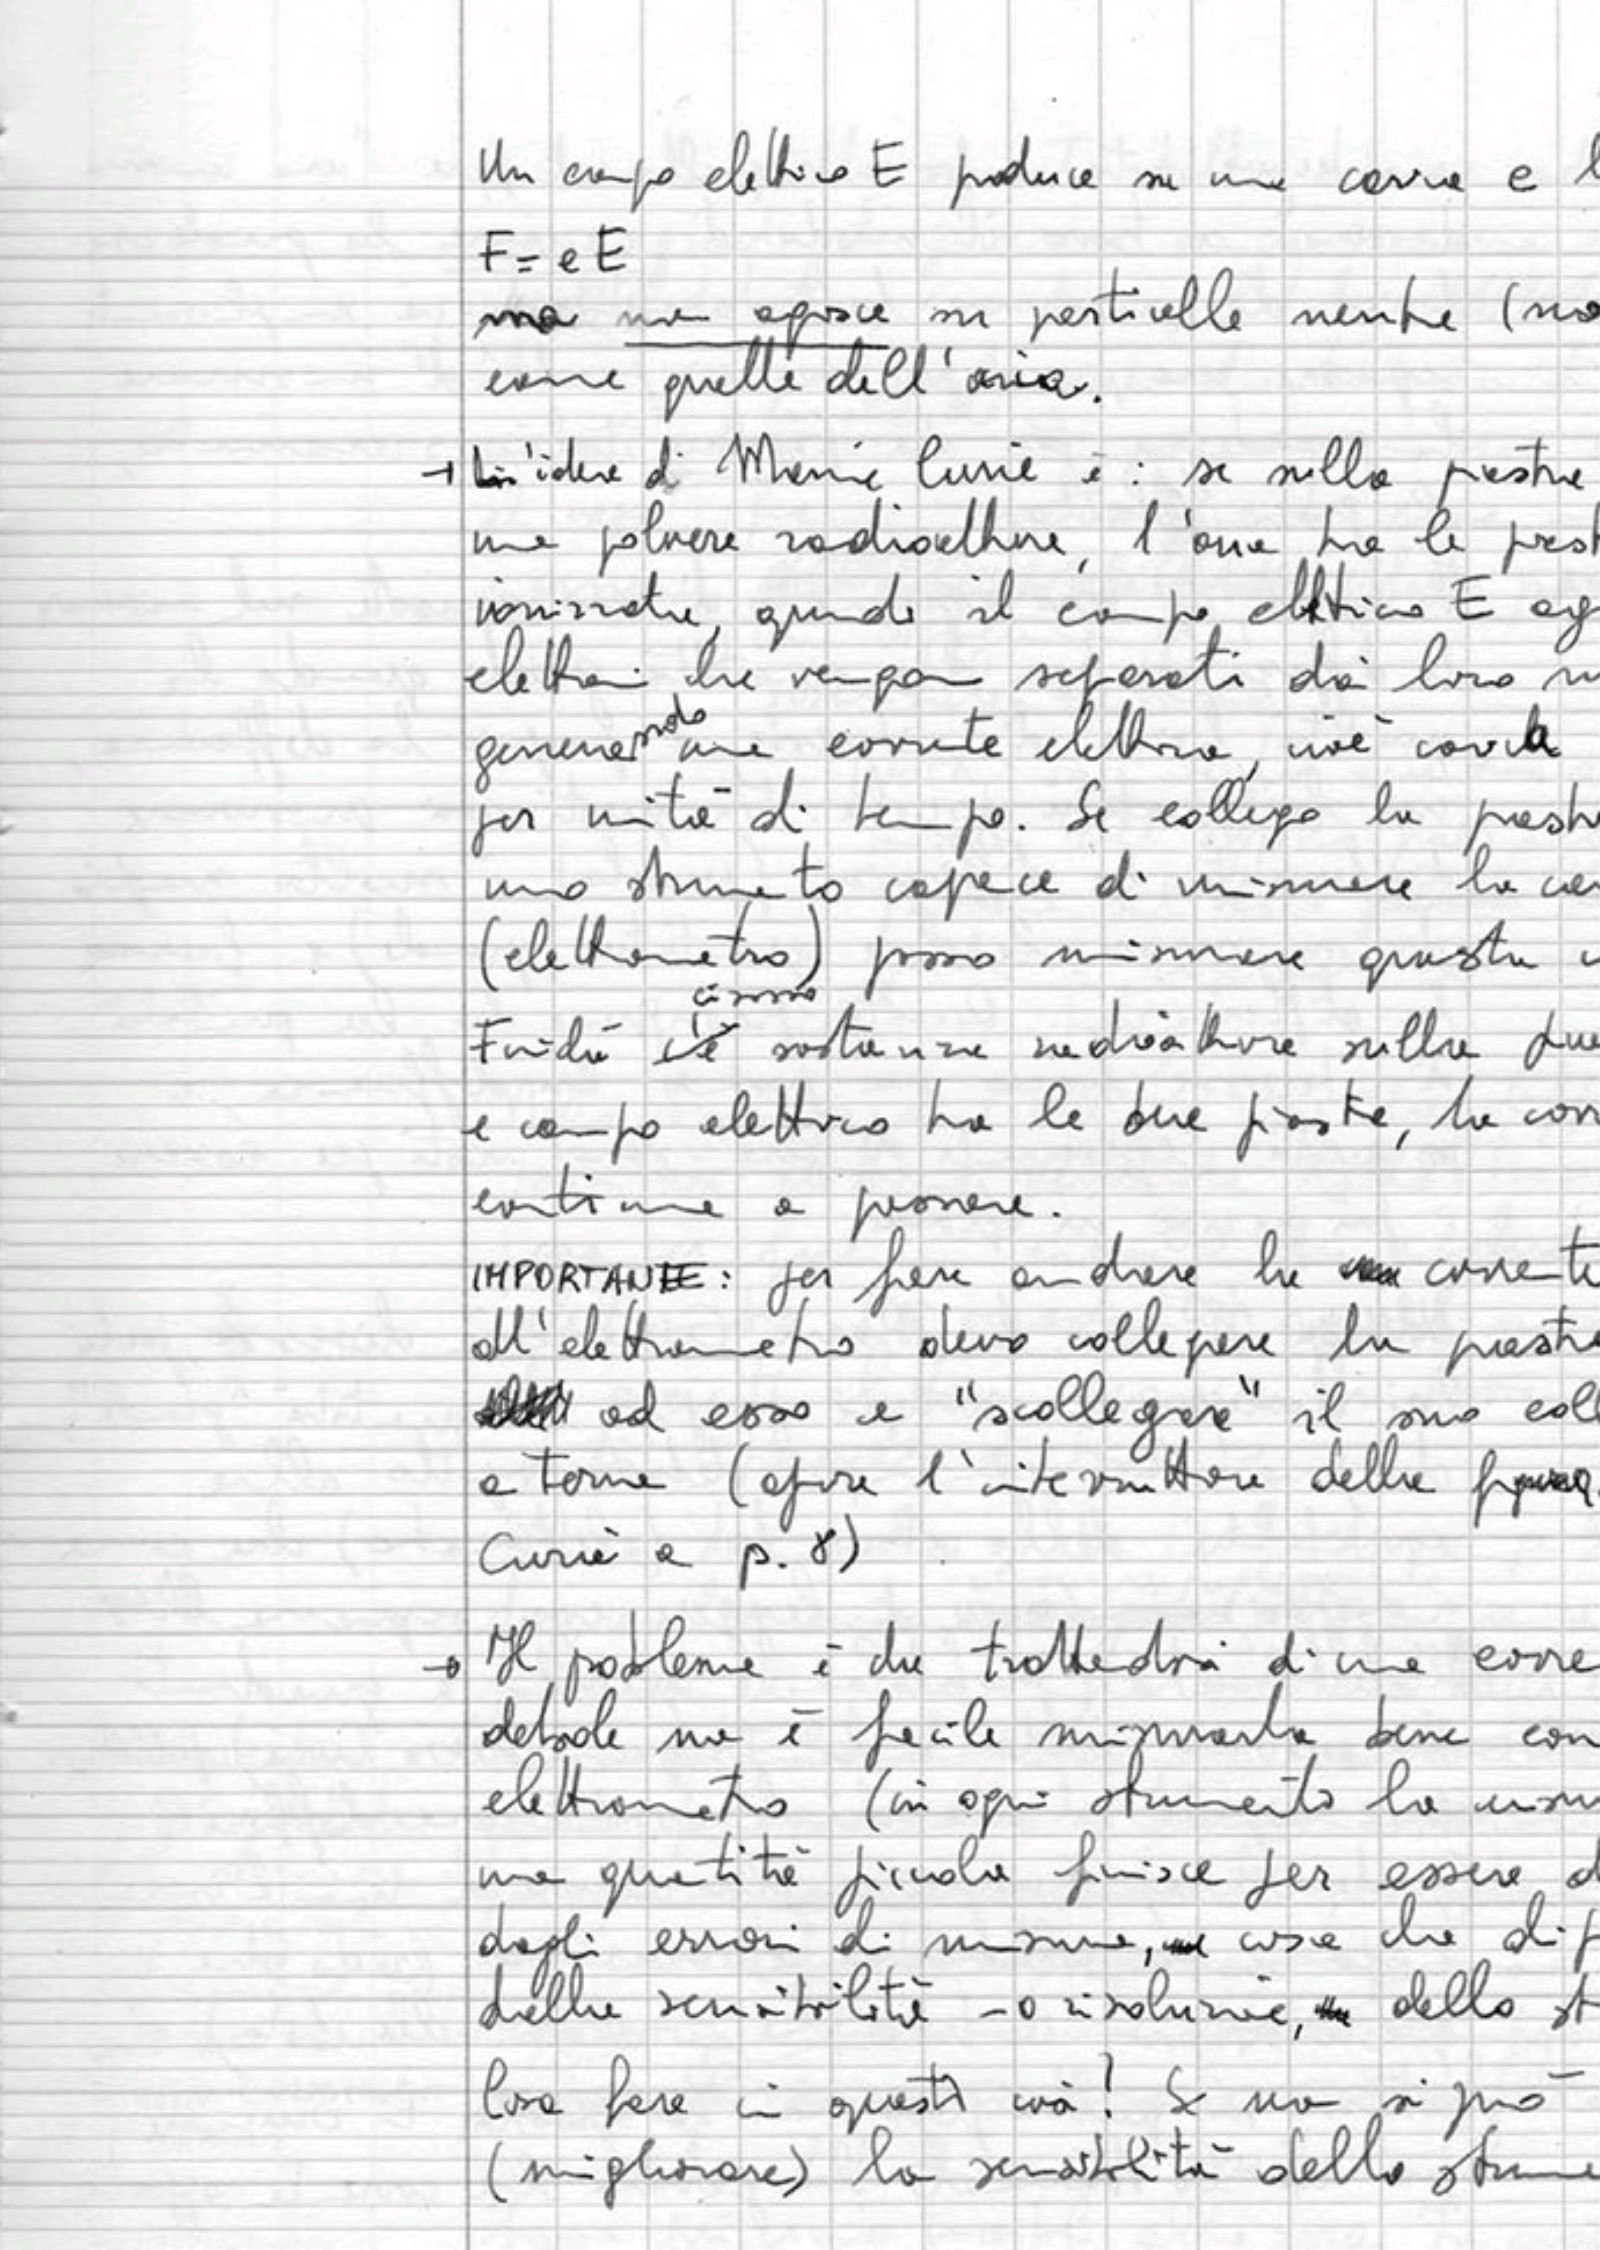 Un campo elettrico E produce su una carica e l
F = e E
ma non agisce su particelle neutre (mo
come quelle dell'aria.
→ L'idea di Marie Curie è: se sulla piastra
una polvere radioattiva, l'aria tra le piast
ionizzata, quindi il campo elettrico E ag
elettroni che vengono separati dai loro
generando una corrente elettrica, cioè carica
per unità di tempo. Se collego la piastra
uno strumento capace di misurare la car
(elettrometro) posso misurare questa
Finché ci sono sostanze radioattive sulla
e campo elettrico tra le due piastre, la corr
continua a passare.
IMPORTANTE: per fare andare la corrente
all'elettrometro devo collegare la piastra
ad esso e "scollegare" il suo coll
a terra (aprire l'interruttore della figura
Curie a p. 8)
→ Il problema è che trattandosi di una corre
debole non è facile misurarla bene con
elettrometro (in ogni strumento la misu
una quantità piccola finisce per essere d
dagli errori di misura, cosa che dip
dalla sensibilità - o risoluzione, dello st
Cosa fare in questi casi? Se non si può
(migliorare) la sensibilità dello strume